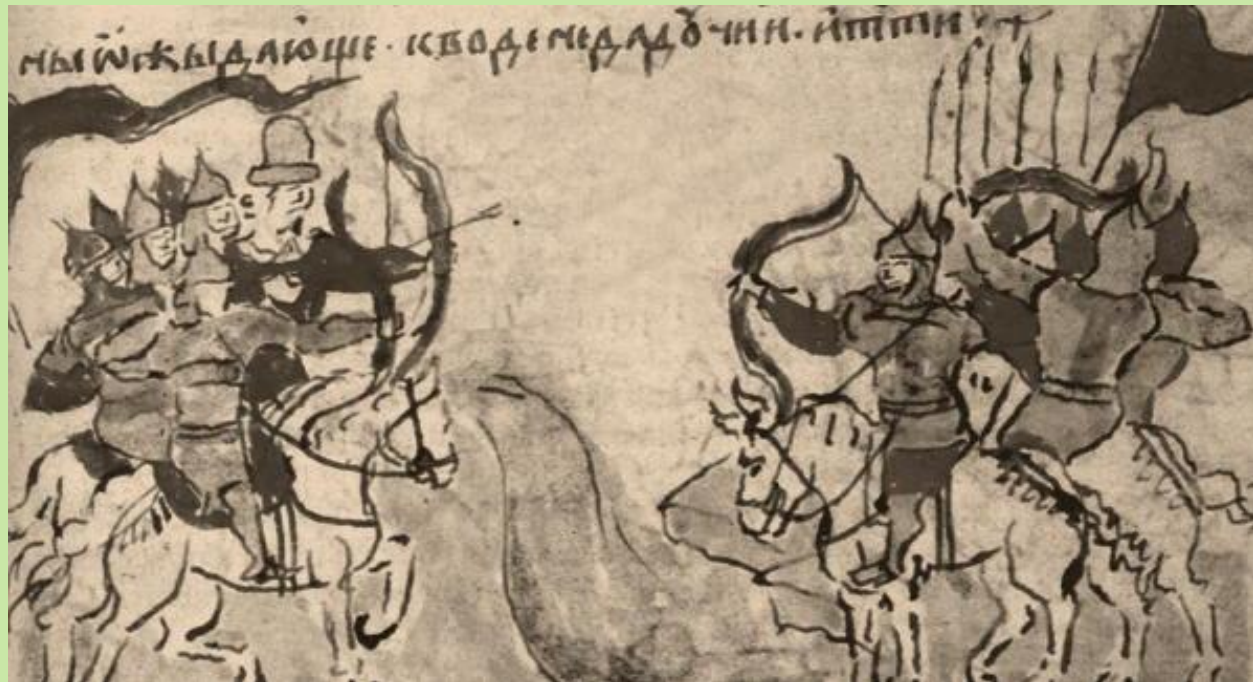 мы ѿжыдающе · кводе недадꙋчии · итти